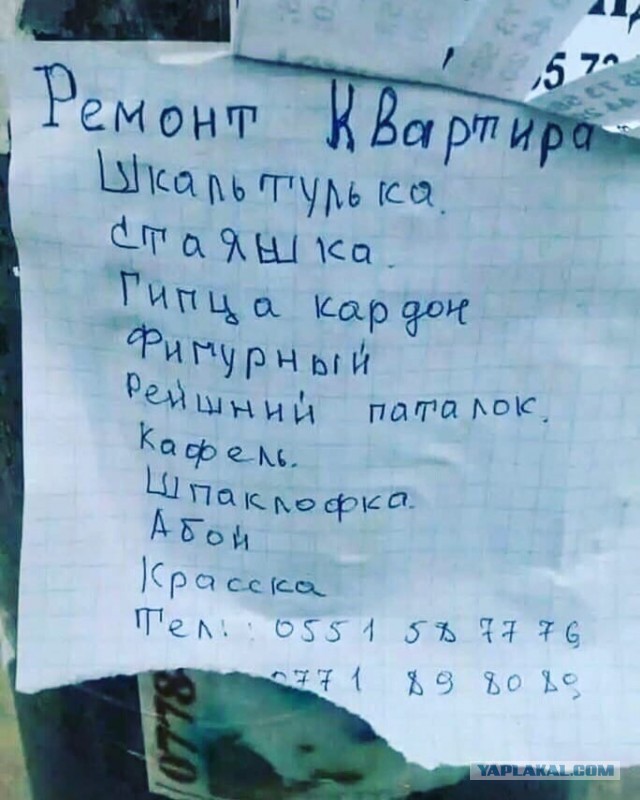 5 72
Ремонт Квартира
Шкальтулька.
Стаяшка.
Гипца кардон
Фимурный
Рейшний паталок.
Кафель.
Шпаклофка.
Абой
Красска
Тел: : 0551 58 77 76
0771 89 80 89
0778
YAPLAKAL.COM